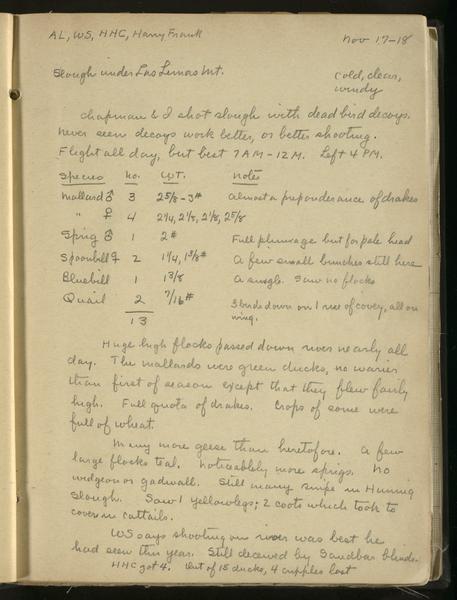 AL, WS, HHC, Harry Frank Nov 17-18
Slough under Los Lunas Mt. cold, clear,
windy
Chapman & I shot slough with dead bird decoys.
Never seen decoys work better, or better shooting.
Flight all day, but best 7 AM - 12 M. Left 4 PM.
Species No. Wt. Notes
Mallard ♂ 3 2 5/8 - 3# almost a preponderance of drakes
" ♀ 4 2 1/4, 2 1/8, 2 1/8, 2 5/8
Sprig ♂ 1 2# Full plumage but for pale head
Spoonbill ♀ 2 1 1/4, 1 3/8# A few small bunches still here
Bluebill 1 1 3/8 A single. Saw no flocks
Quail 2 7/16# 3 birds down on 1 rise of covey, all on
wing.
13
Huge high flocks passed down river nearly all
day. The mallards were green ducks, no warier
than first of season except that they flew fairly
high. Full quota of drakes. Crops of some were
full of wheat.
Many more geese than heretofore. A few
large flocks teal. Noticeably more sprigs. No
widgeon or gadwall. Still many snipe in Huning
Slough. Saw 1 yellowlegs; 2 coots which took to
cover in cattails.
WS says shooting on river was best he
had seen this year. Still deceived by Sandbar blinds.
HHC got 4. Out of 15 ducks, 4 cripples lost